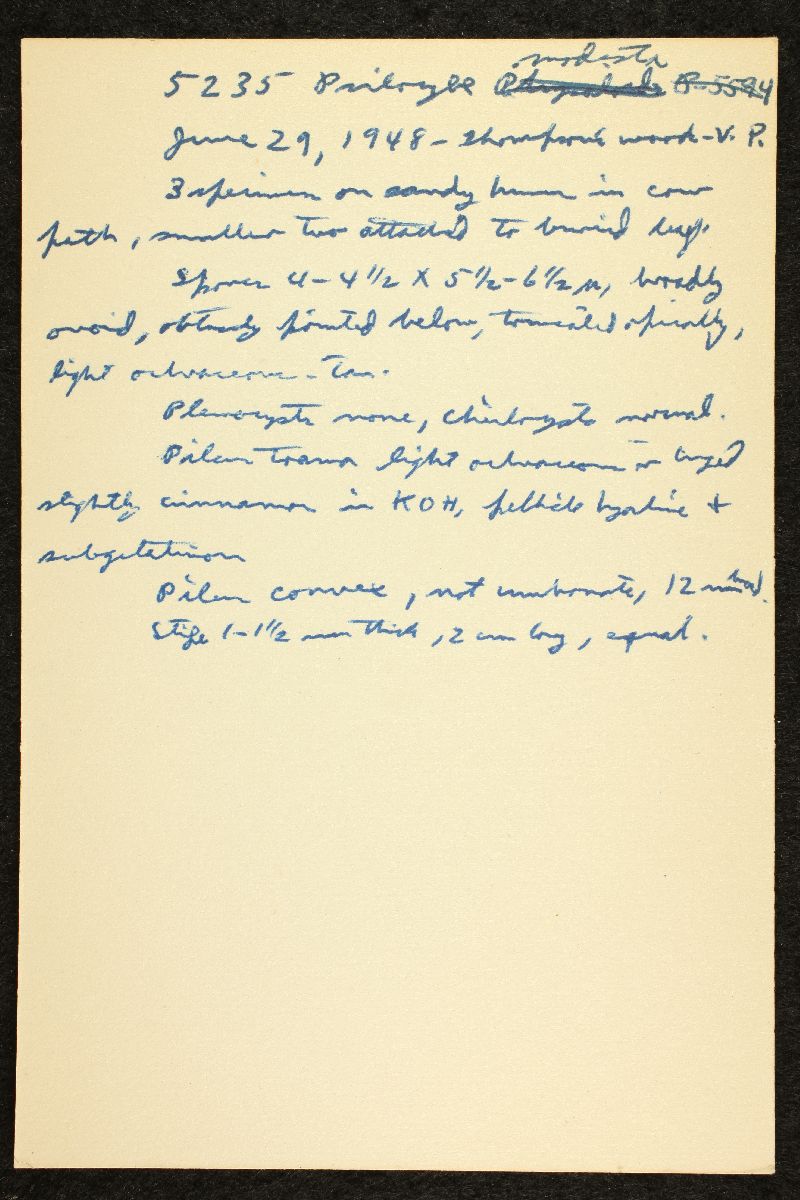 modesta
5235 Psilocybe P-5594
June 29, 1948 – Thompson's woods – V. P.
3 specimens on sandy humus in cow
path, smaller two attached to buried
Spores 4 – 4 1/2 X 5 1/2 – 6 1/2 µ, broadly
ovoid, obtusely pointed below, truncated apically,
light ochraceous – tan.
Pleurocysts none, cheilocysts normal.
Pileus trama light ochraceous or tinged
slightly cinnamon in KOH, pellicle hyaline +
subgelatinous
Pileus convex, not umbonate, 12 mm broad.
Stipe 1 – 1 1/2 mm thick, 2 cm long, equal.